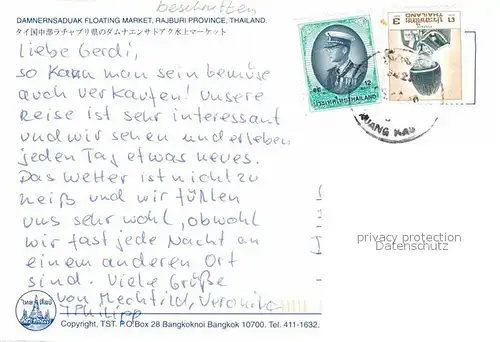 beschnitten
DAMNERNSADUAK FLOATING MARKET, RAJBURI PROVINCE, THAILAND.
タイ国中部ラチャブリ県のダムナエンサドアク水上マーケット
Liebe Gerdi,
so kann man sein Gemüse
auch verkaufen! Unsere
Reise ist sehr interessant
und wir sehen und erleben
jeden Tag etwas neues.
Das Wetter ist nicht zu
heiß und wir fühlen
uns sehr wohl, obwohl
wir fast jede Nacht an
einem anderen Ort
sind. Viele Grüße
von Mechthild, Veronika
Philipp
Copyright, TST. P.O.Box 28 Bangkoknoi Bangkok 10700. Tel. 411-1632.
12
ประเทศไทย THAILAND
3
THAILAND
privacy protection
Datenschutz